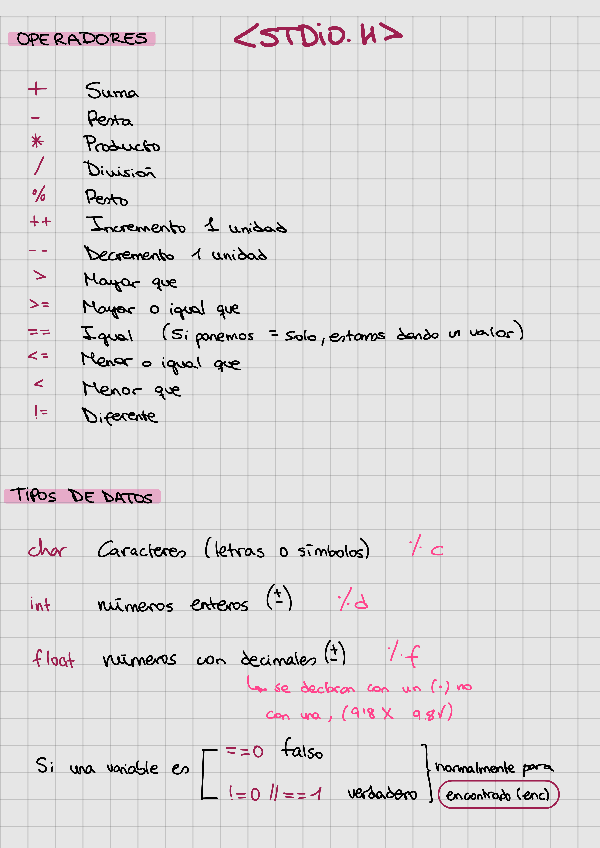 OPERADORES <STDIO.H>
+ Suma
- Resta
* Producto
/ División
% Resto
++ Incremento 1 unidad
-- Decremento 1 unidad
> Mayor que
>= Mayor o igual que
== Igual (Si ponemos = solo, estamos dando un valor)
<= Menor o igual que
< Menor que
!= Diferente
TIPOS DE DATOS
char Caracteres (letras o símbolos) %c
int números enteros (±) %d
float números con decimales (±) %f
↳ se declaran con un (.) no
con una , (9'8 X 9.8√)
Si una variable es ==0 falso
!=0 // ==1 verdadero
normalmente para
encontrado (enc)